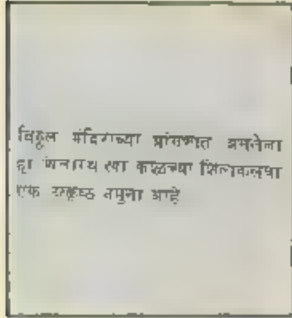 विठ्ठल मंदिराच्या प्रांगणात असलेला
हा त्या काळच्या शिल्पकलेचा
एक उत्कृष्ठ नमुना आहे